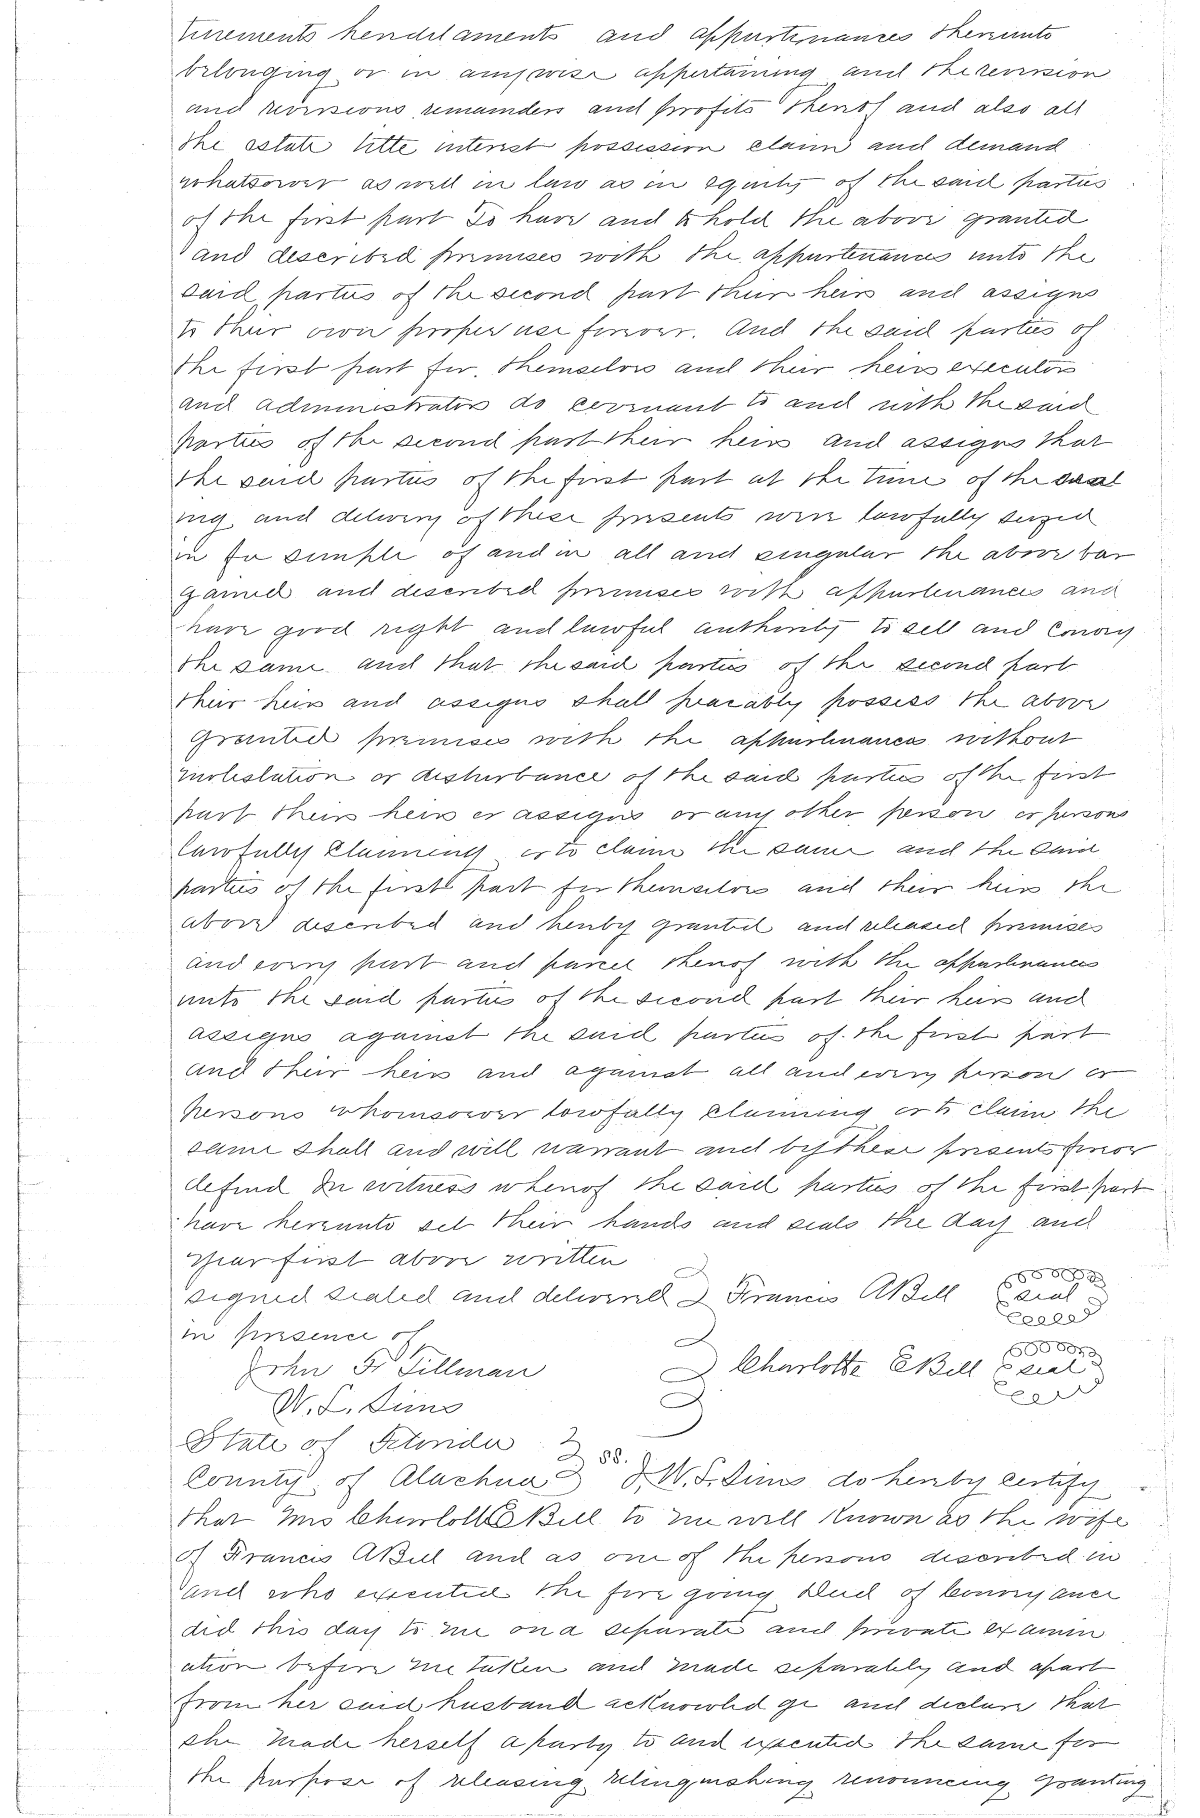 tenements hereditaments and appurtenances thereunto
belonging or in anywise appertaining and the reversion
and reversions remainders and profits thereof and also all
the estate title interest possession claim and demand
whatsoever as well in law as in equity of the said parties
of the first part To have and to hold the above granted
and described premises with the appurtenances unto the
said parties of the second part their heirs and assigns
to their own proper use forever. And the said parties of
the first part for themselves and their heirs executors
and administrators do covenant to and with the said
parties of the second part their heirs and assigns that
the said parties of the first part at the time of the seal
ing and delivery of these presents were lawfully seized
in fee simple of and in all and singular the above bar
gained and described premises with appurtenances and
have good right and lawful authority to sell and convey
the same and that the said parties of the second part
their heirs and assigns shall peacably possess the above
granted premises with the appurtenances without
molestation or disturbance of the said parties of the first
part their heirs or assigns or any other person or persons
lawfully claiming or to claim the same and the said
parties of the first part for themselves and their heirs the
above described and hereby granted and released premises
and every part and parcel thereof with the appurtenances
unto the said parties of the second part their heirs and
assigns against the said parties of the first part
and their heirs and against all and every person or
persons whomsoever lawfully claiming or to claim the
same shall and will warrant and by these presents forever
defend In witness whereof the said parties of the first part
have hereunto set their hands and seals the day and
year first above written
signed sealed and delivered Francis A Bell seal
in presence of
John F. Tillman Charlotte E Bell seal
W. L. Sims
State of Florida
County of Alachua ss. I W. L. Sims do hereby certify
that Mrs Charlotte E Bell to me well known as the wife
of Francis A Bell and as one of the persons described in
and who executed the fore going Deed of Conveyance
did this day to me on a separate and private examin
ation before me taken and made separately and apart
from her said husband acknowled ge and declare that
she made herself a party to and executed the same for
the purpose of releasing relinquishing renouncing granting